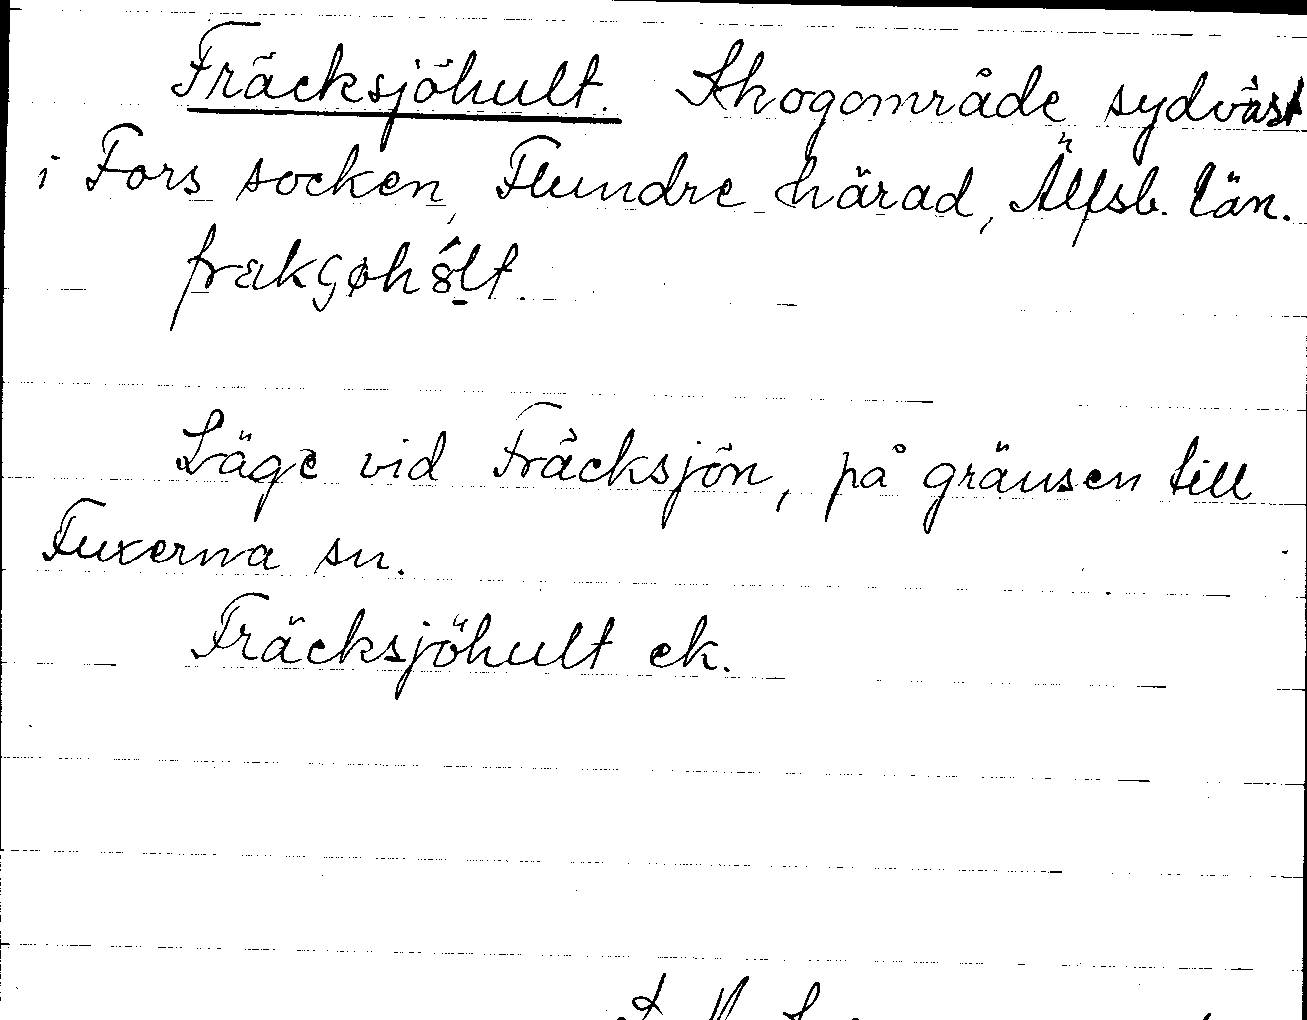 Fräcksjöhult. Skogområde sydväst
i Fors socken, Flundre härad, Älfsb. län.
Läge vid Fräcksjön, på gränsen till
Fuxerna sn.
Fräcksjöhult ek.